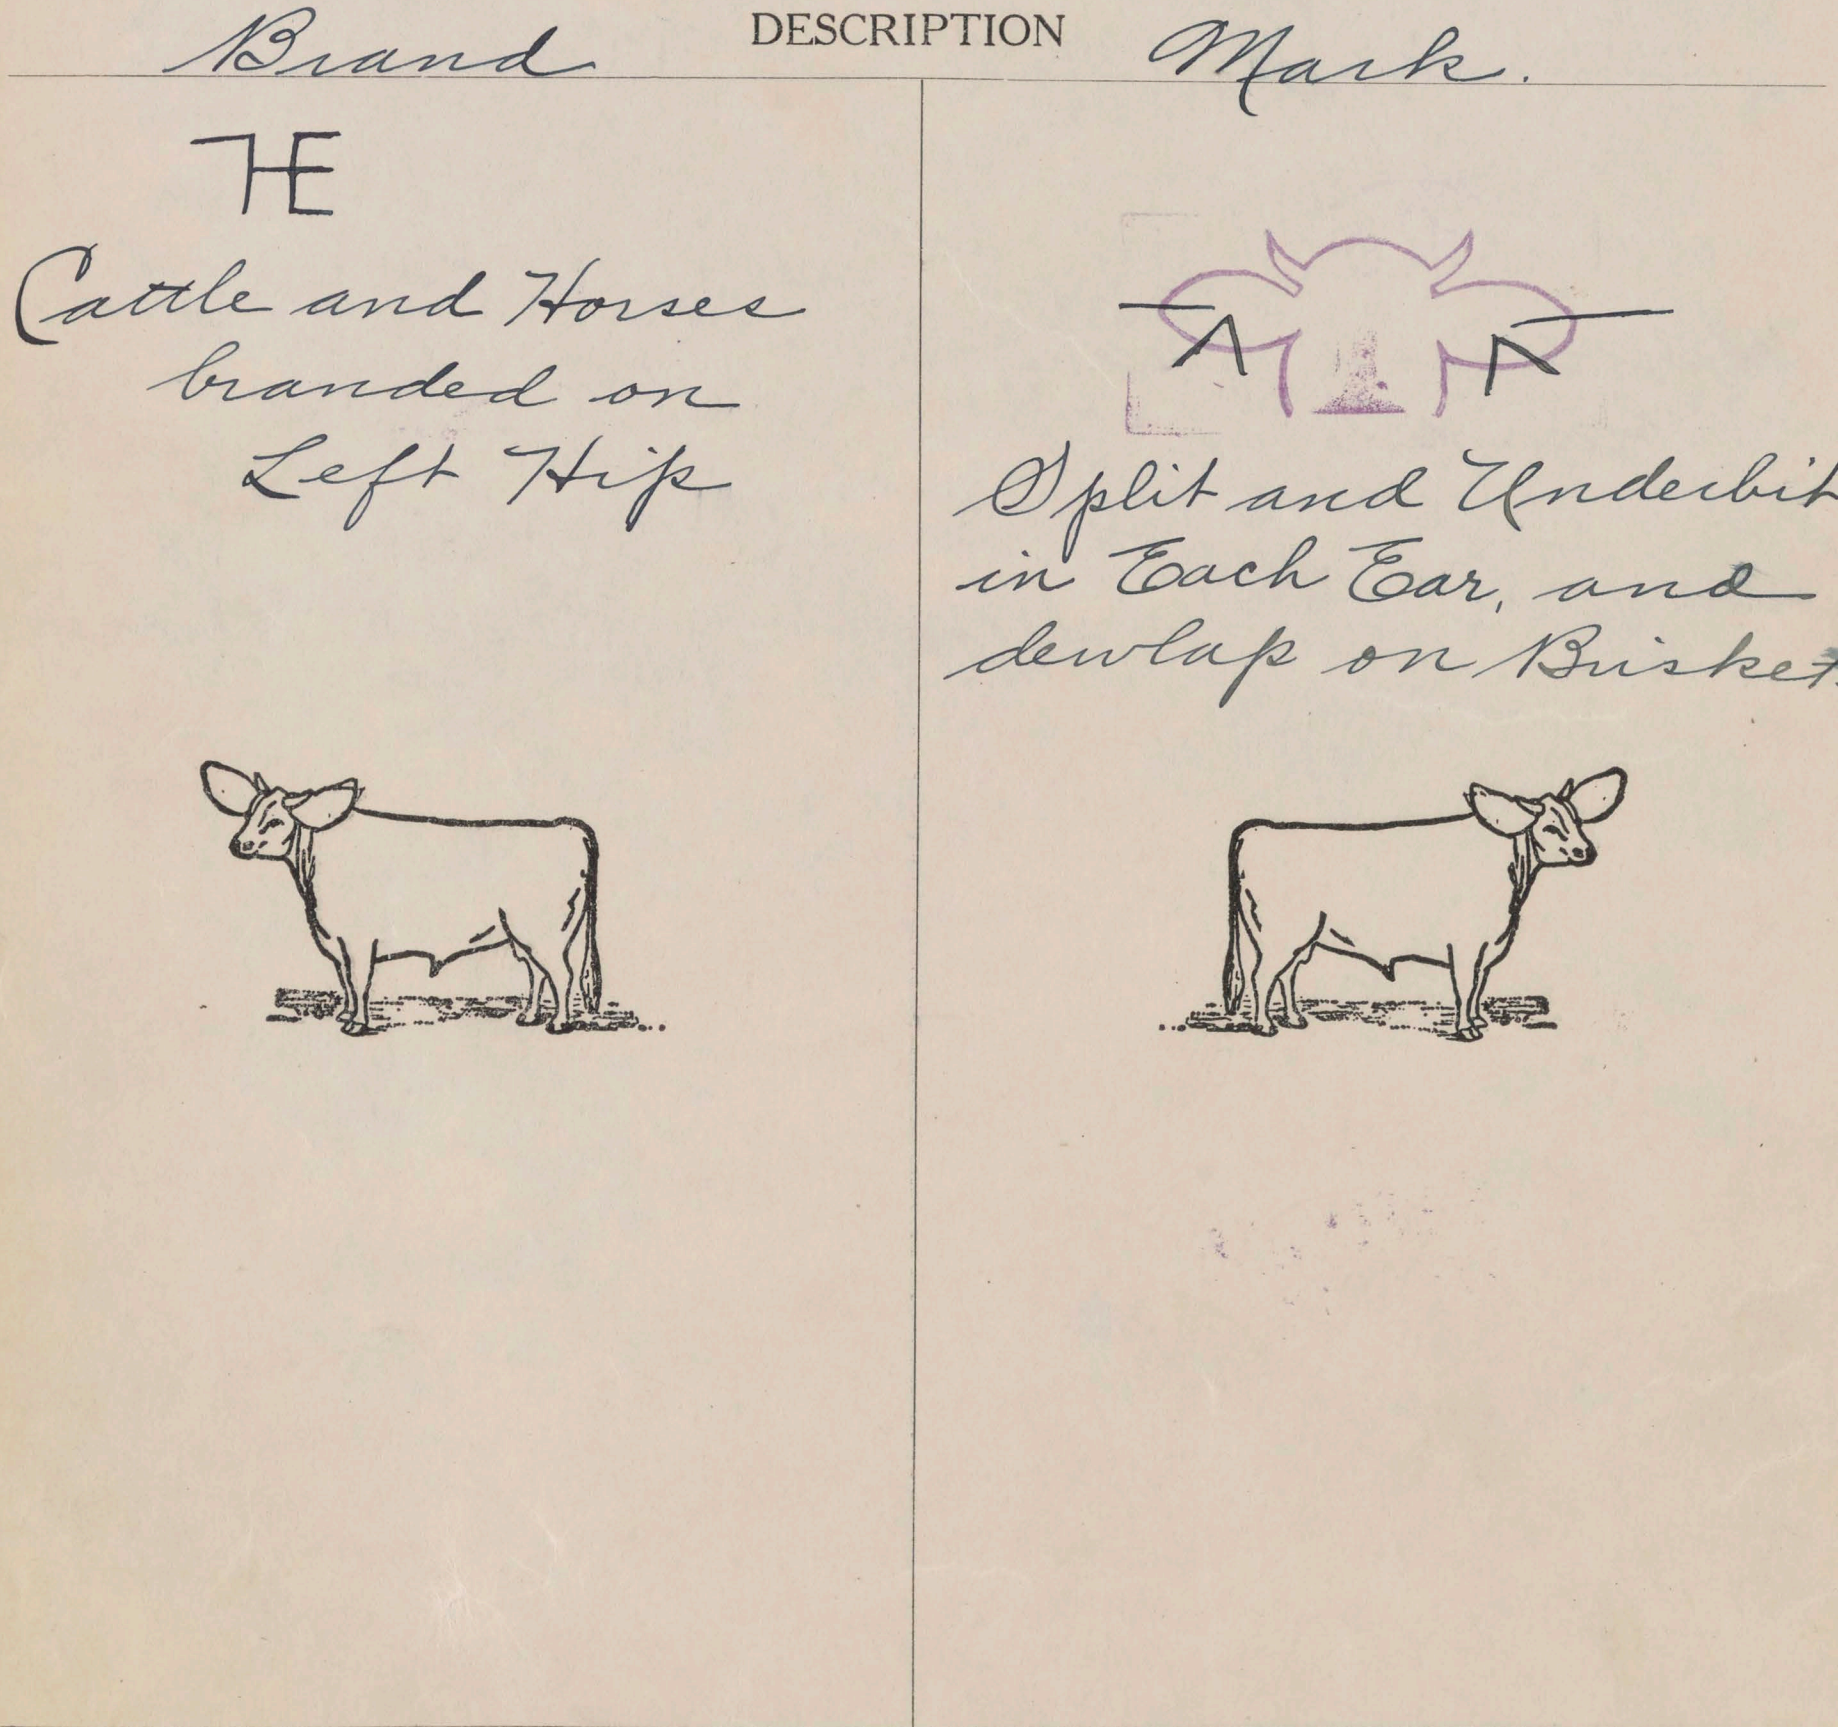 DESCRIPTION
Brand
Mark.
7HE
Cattle and Horses
branded on
Left Hip
Split and Underbit
in Each Ear, and
dewlap on Brisket.